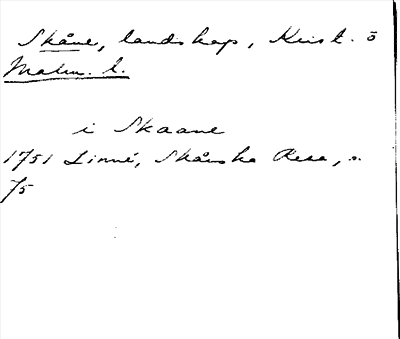 Skåne, landskap, Krist. o
Malm. l.
i Skaane
1751 Linné, Skånska Resa, s.
75